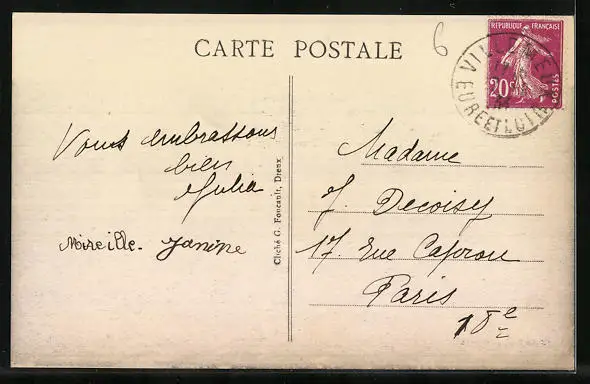 CARTE POSTALE
6
REPUBLIQUE FRANÇAISE
20c
POSTES
EURE ET LOIR
Vous embrassons
bien
Julia
Mireille. Janine
Cliché G. Foucault, Dreux
Madame
J. Decoisy
17. Rue Capron
Paris
18e